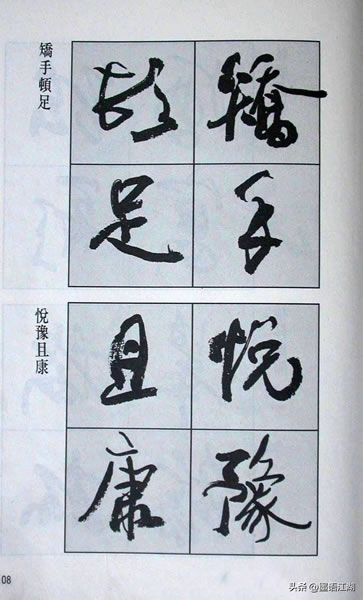 矯手
頓足
矯手頓足
悅豫
且康
悅豫且康
08
头条 @墨语江湖